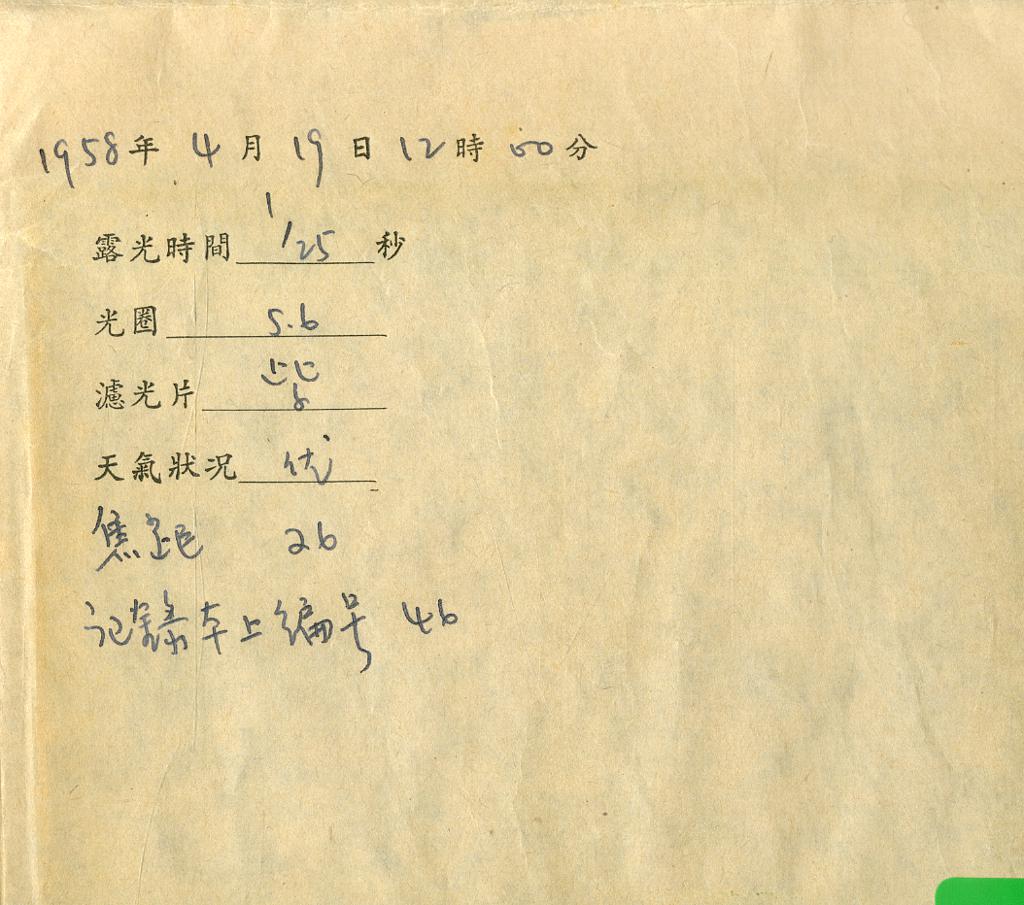 1958年 4月 19日 12時 00分
露光時間 1/25 秒
光圈 5.6
濾光片
天氣狀况 优
焦距 26
记錄本上编号 46